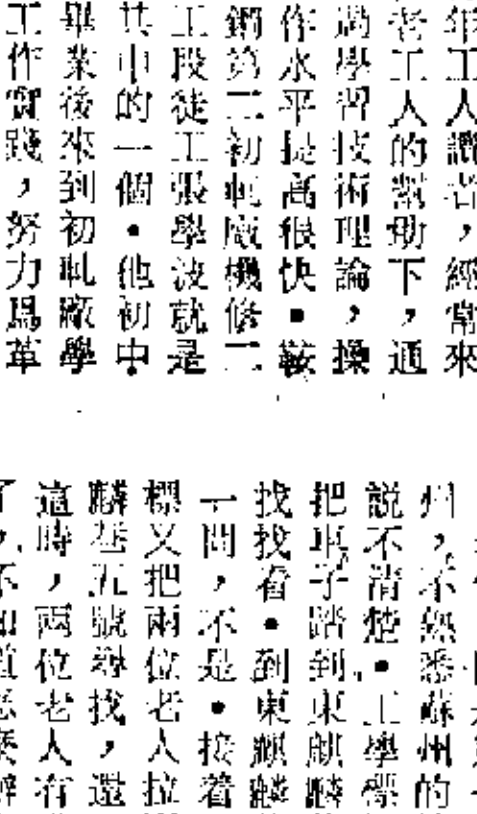 年工人讚者，經常來
老工人的幫助下，通
過學習技術理論，操
作水平提高很快。鞍
鋼第二初軋廠機修二
工段徒工張學波就是
其中的一個。他初中
畢業後來到初軋廠學
工作實踐，努力爲革
州，不熟悉蘇州的
説不清楚。王學標
把車子踏到東麒麟
找找看。到東麒麟
一問，不是。接着
標又把兩位老人拉
麟巷五號尋找，還
這時，兩位老人有